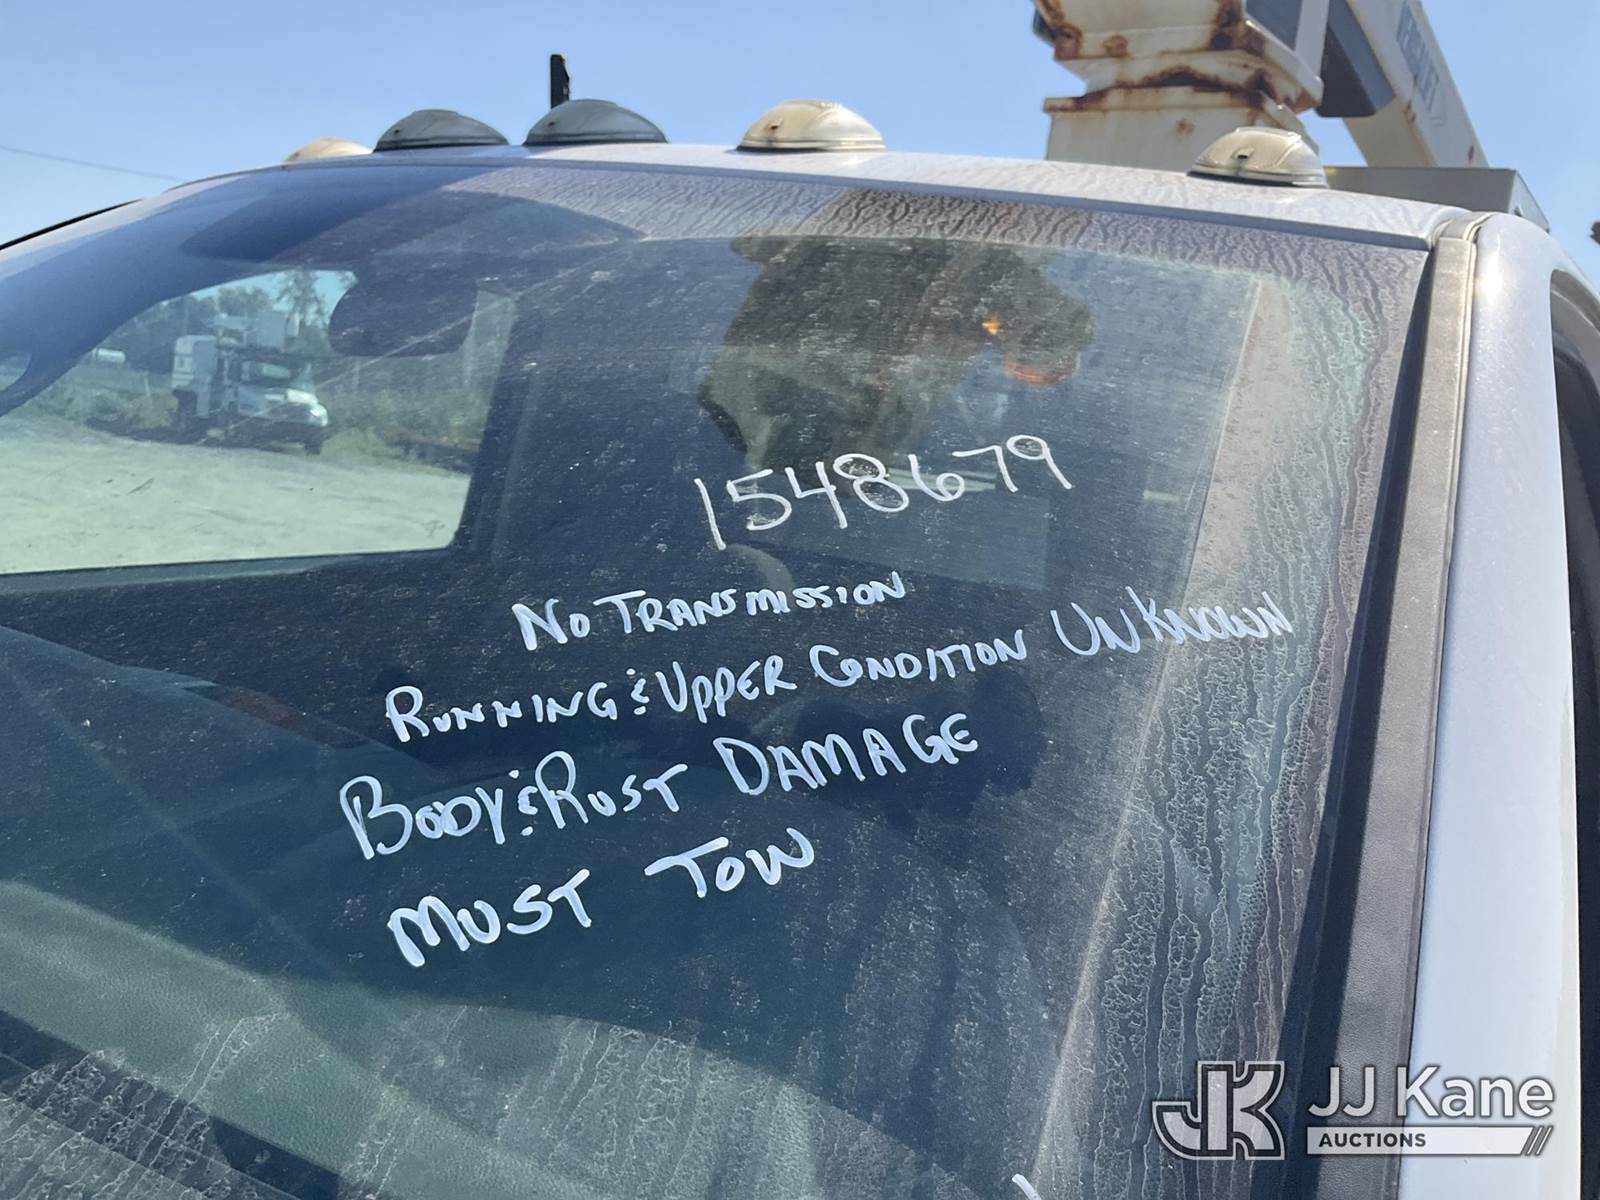 VERSALIFT
1548679
NO TRANSMISSION
RUNNING & UPPER CONDITION UNKNOWN
BODY & RUST DAMAGE
MUST TOW
JK JJ Kane
AUCTIONS